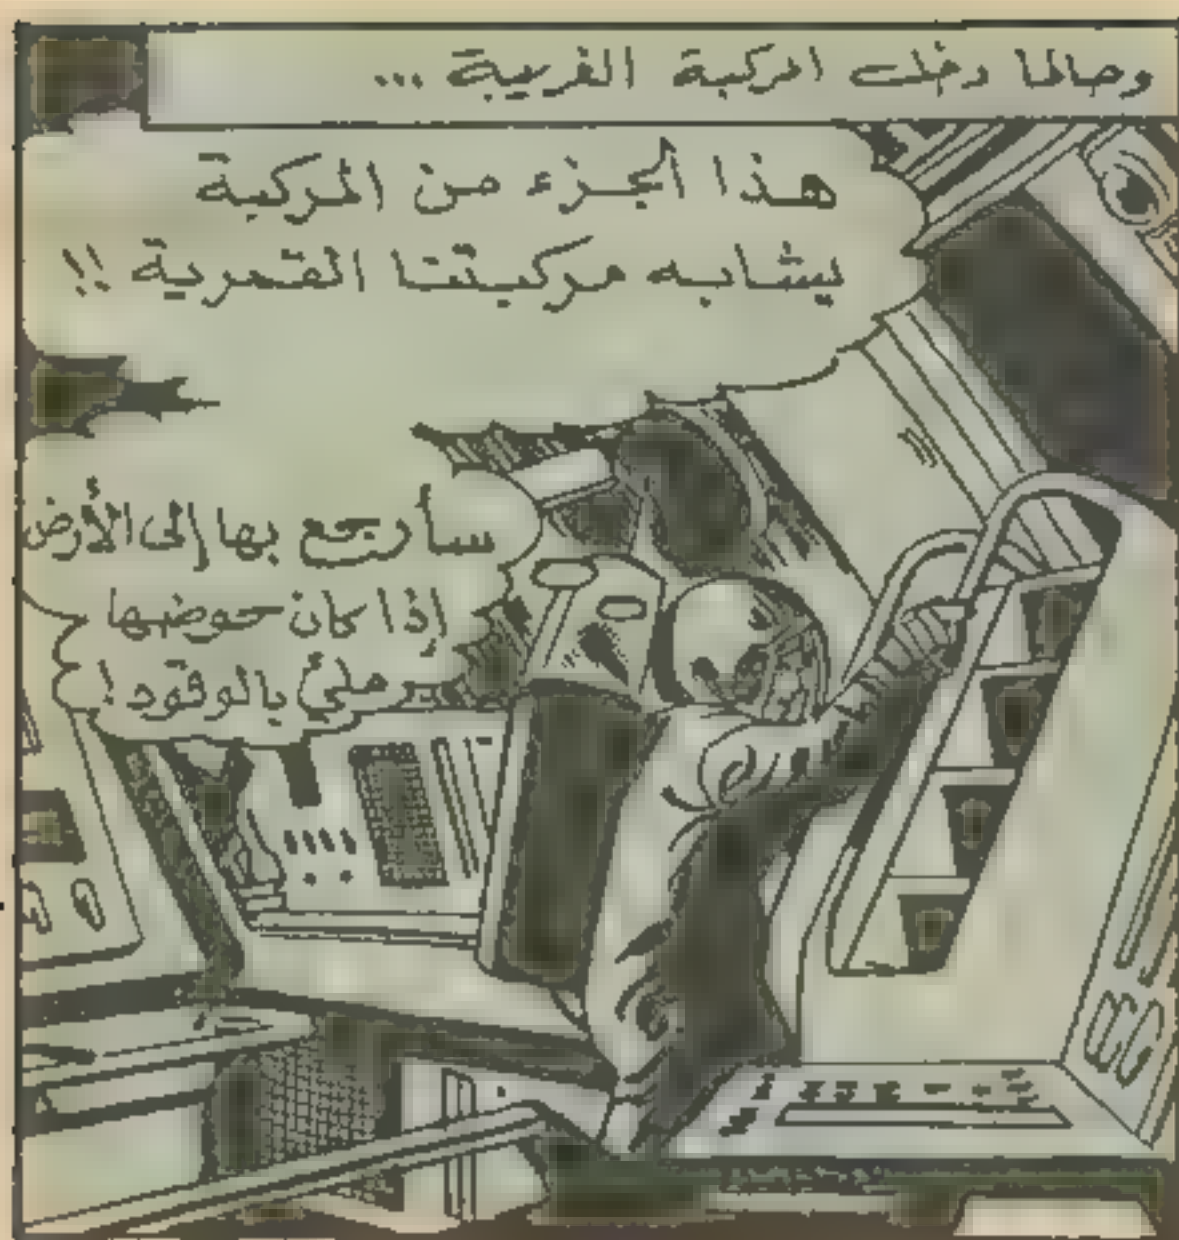 وحالما دخلت المركبة الغريبة ...
هذا الجزء من المركبة
يشابه مركبتنا القمرية !!
سأرجع بها إلى الأرض
إذا كان حوضها
مليء بالوقود !